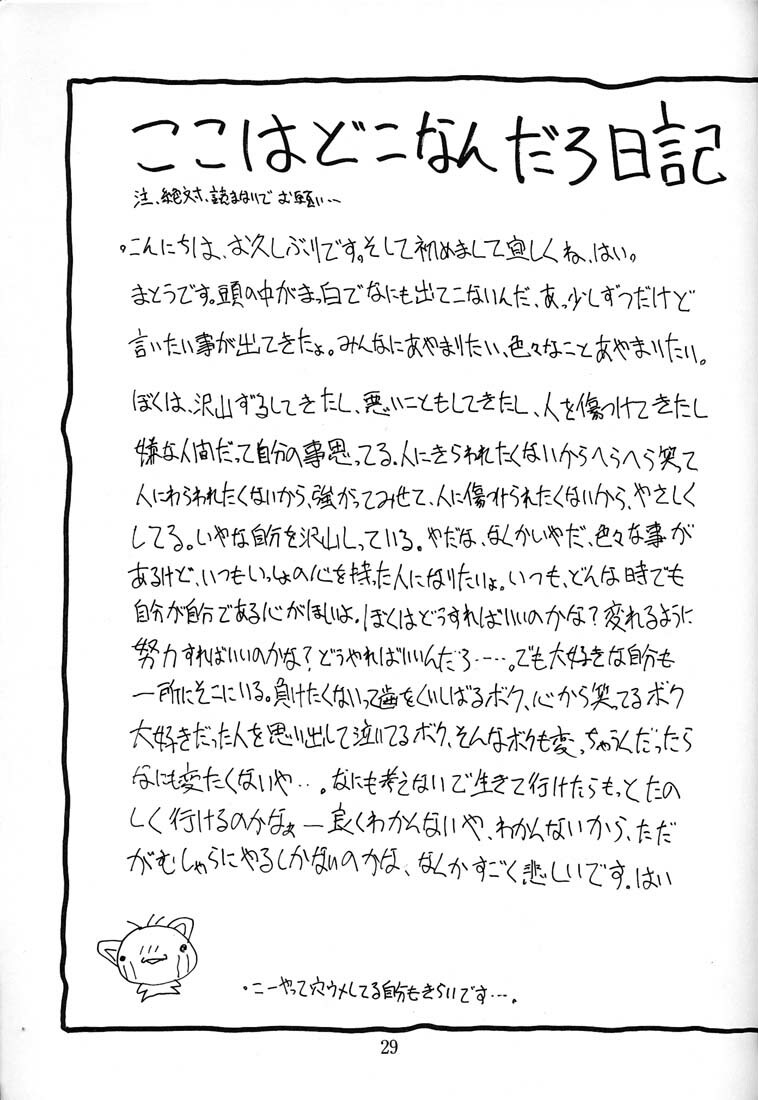 ここはどこなんだろ日記
注、絶対、読まないでお願い…
。こんにちは、お久しぶりです。そして初めまして宜しくね、はい。
まとうです。頭の中がまっ白でなにも出てこないんだ、あっ少しずつだけど
言いたい事が出てきたょ。みんなにあやまりたい、色々なことあやまりたい。
ぼくは、沢山ずるしてきたし、悪いこともしてきたし、人を傷つけてきたし
嫌な人間だって自分の事思ってる。人にきらわれたくないからへらへら笑て
人にわらわれたくないから、強がってみせて、人に傷つけられたくないから、やさしく
してる。いやな自分を沢山しっている。やだな、なんかいやだ、色々な事が
あるけど、いつもいっしょの心を持った人になりたいょ。いつも、どんな時でも
自分が自分である心がほしいよ。ぼくはどうすればいいのかな？変れるように
努力すればいいのかな？どうやればいいんだろ……。でも大好きな自分も
一所にそこにいる。負けたくないって歯をくいしばるボク、心から笑ってるボク
大好きだった人を思い出して泣いてるボク、そんなボクも変っちゃうんだったら
なにも変たくないや…。なにも考えないで生きて行けたらもっとたの
しく行けるのかなぁー良くわかんないや、わかんないから、ただ
がむしゃらにやるしかないのかな、なんかすごく悲しいです。はい
・こーやって穴ウメしてる自分もきらいです…。
29